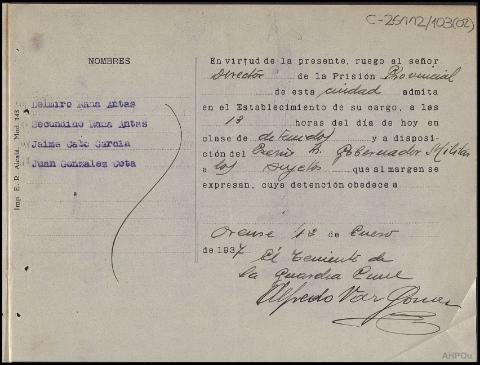 C-26112/103(02)
NOMBRES
Delmiro Rana Antas
Secundino Rana Antas
Jaime Cabo Garcia
Juan Gonzalez Cota
Imp. E. R. Alcalá. Mod. 148
En virtud de la presente, ruego al señor
Director de la Prisión Provincial
de esta ciudad admita
en el Establecimiento de su cargo, a las
13 horas del día de hoy en
clase de detenidos y a disposi-
ción del Excmo Sr. Gobernador Militar
a los sujetos que al margen se
expresan, cuya detención obedece a
Orense 13 de Enero
de 1937
El Teniente de
la Guardia Civil
Alfredo
AHPOu